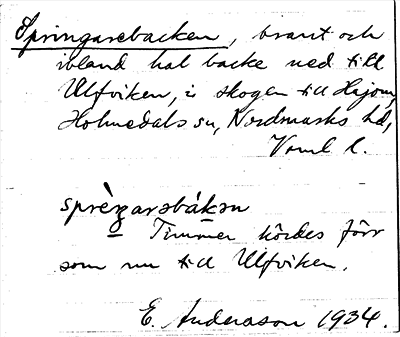 Springarebacken, brant och
ibland hal backe ned till
Ulfviken, i skogen till Hajom,
Holmedals sn, Nordmarks hd,
Vrml l.
sprèŋarəbákən
Timmer kördes förr
som nu till Ulfviken.
E. Anderason 1934.